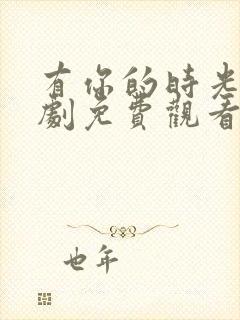 有你的時光
劇免費觀看
也年